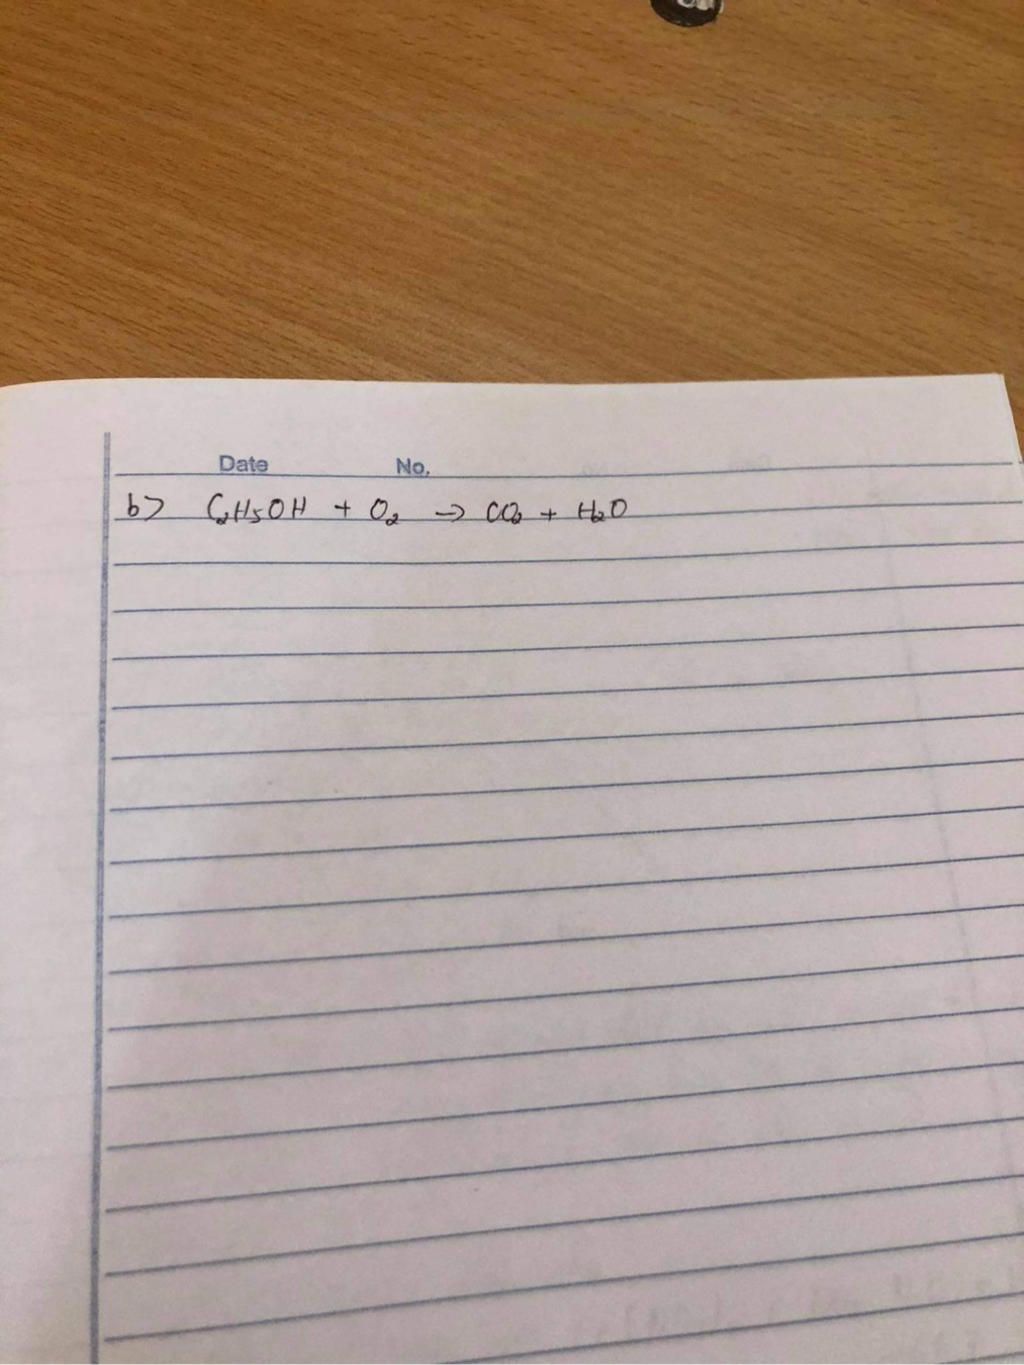 Date No.
b> C₂H₅OH + O₂ → CO₂ + H₂O